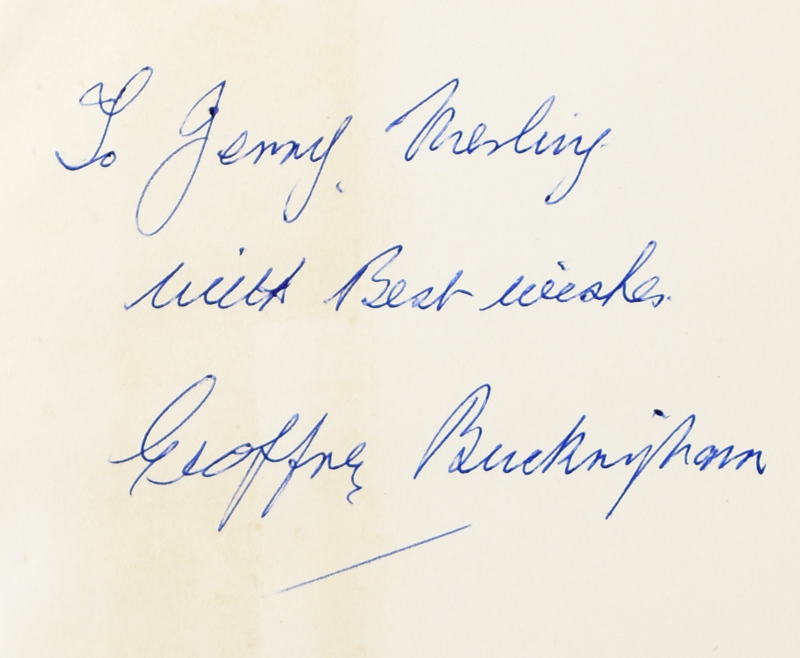 To Jenny
with Best wishes
Geoffrey Buckingham